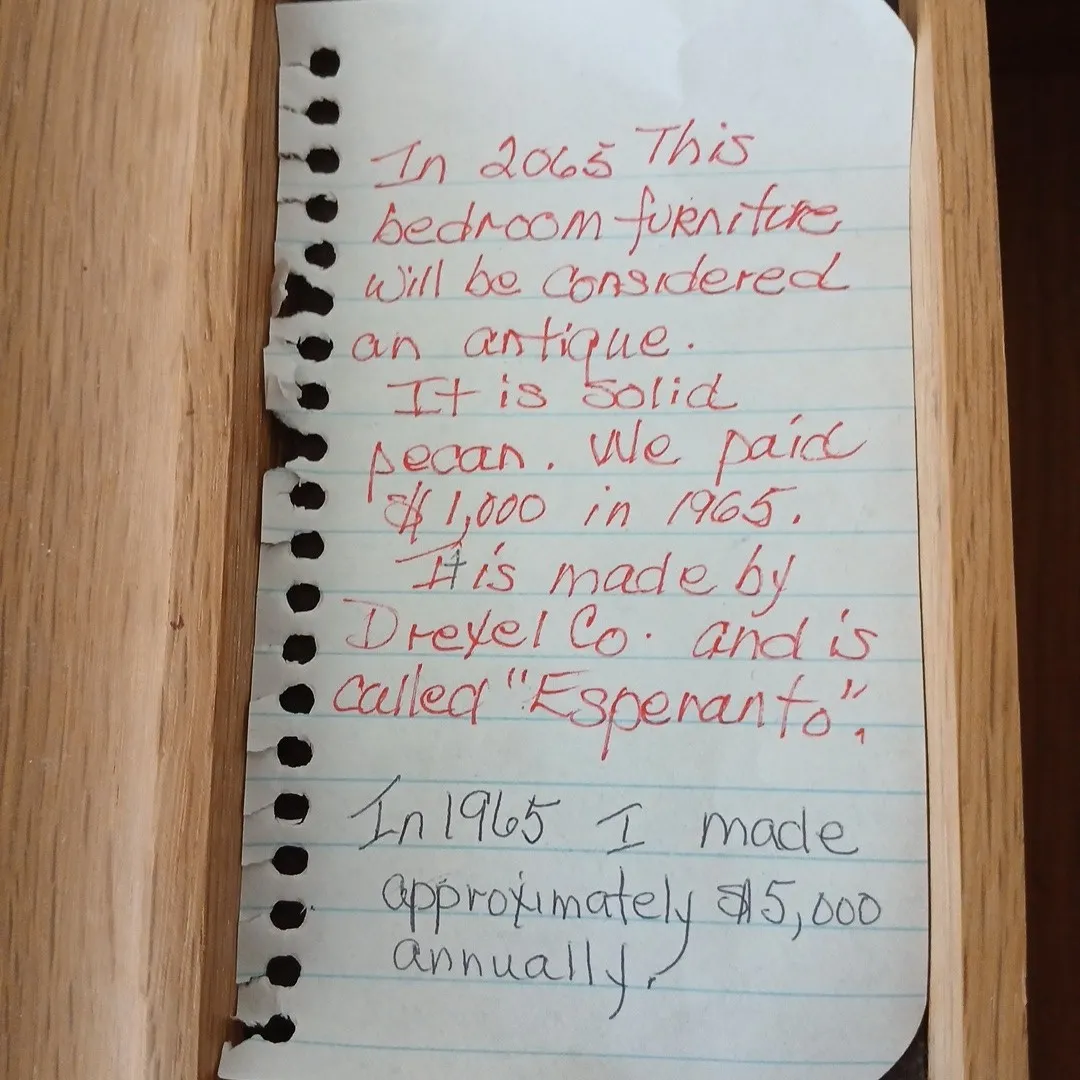 In 2065 This
bedroom furniture
will be considered
an antique.
It is solid
pecan. We paid
$1,000 in 1965.
It is made by
Drexel Co. and is
called "Esperanto".
In 1965 I made
approximately $5,000
annually.